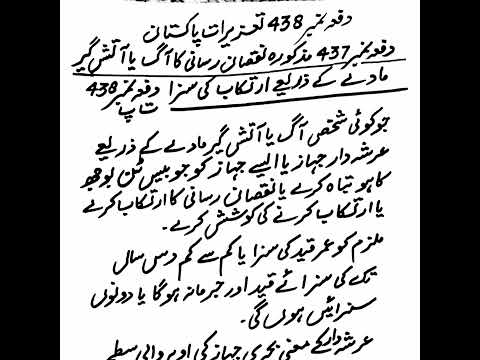 دفعہ نمبر 438 تعزیرات پاکستان
دفعہ نمبر 437 مذکورہ نقصان رسانی کا آگ یا آتش گیر
مادے کے ذریعے ارتکاب کی سزا دفعہ نمبر 438
ت پ
جو کوئی شخص آگ یا آتش گیر مادے کے ذریعے
عرشہ دار جہاز یا ایسے جہاز کو جو بیس ٹن بوجھ
کا ہو تباہ کرے یا نقصان رسانی کا ارتکاب کرے
یا ارتکاب کرنے کی کوشش کرے۔
ملزم کو عمر قید کی سزا یا کم سے کم دس سال
تک کی سزائے قید اور جرمانہ ہوگا یا دونوں
سزائیں ہوں گی۔
عرشہ دار کے معنی بحری جہاز کی اوپر والی سطح